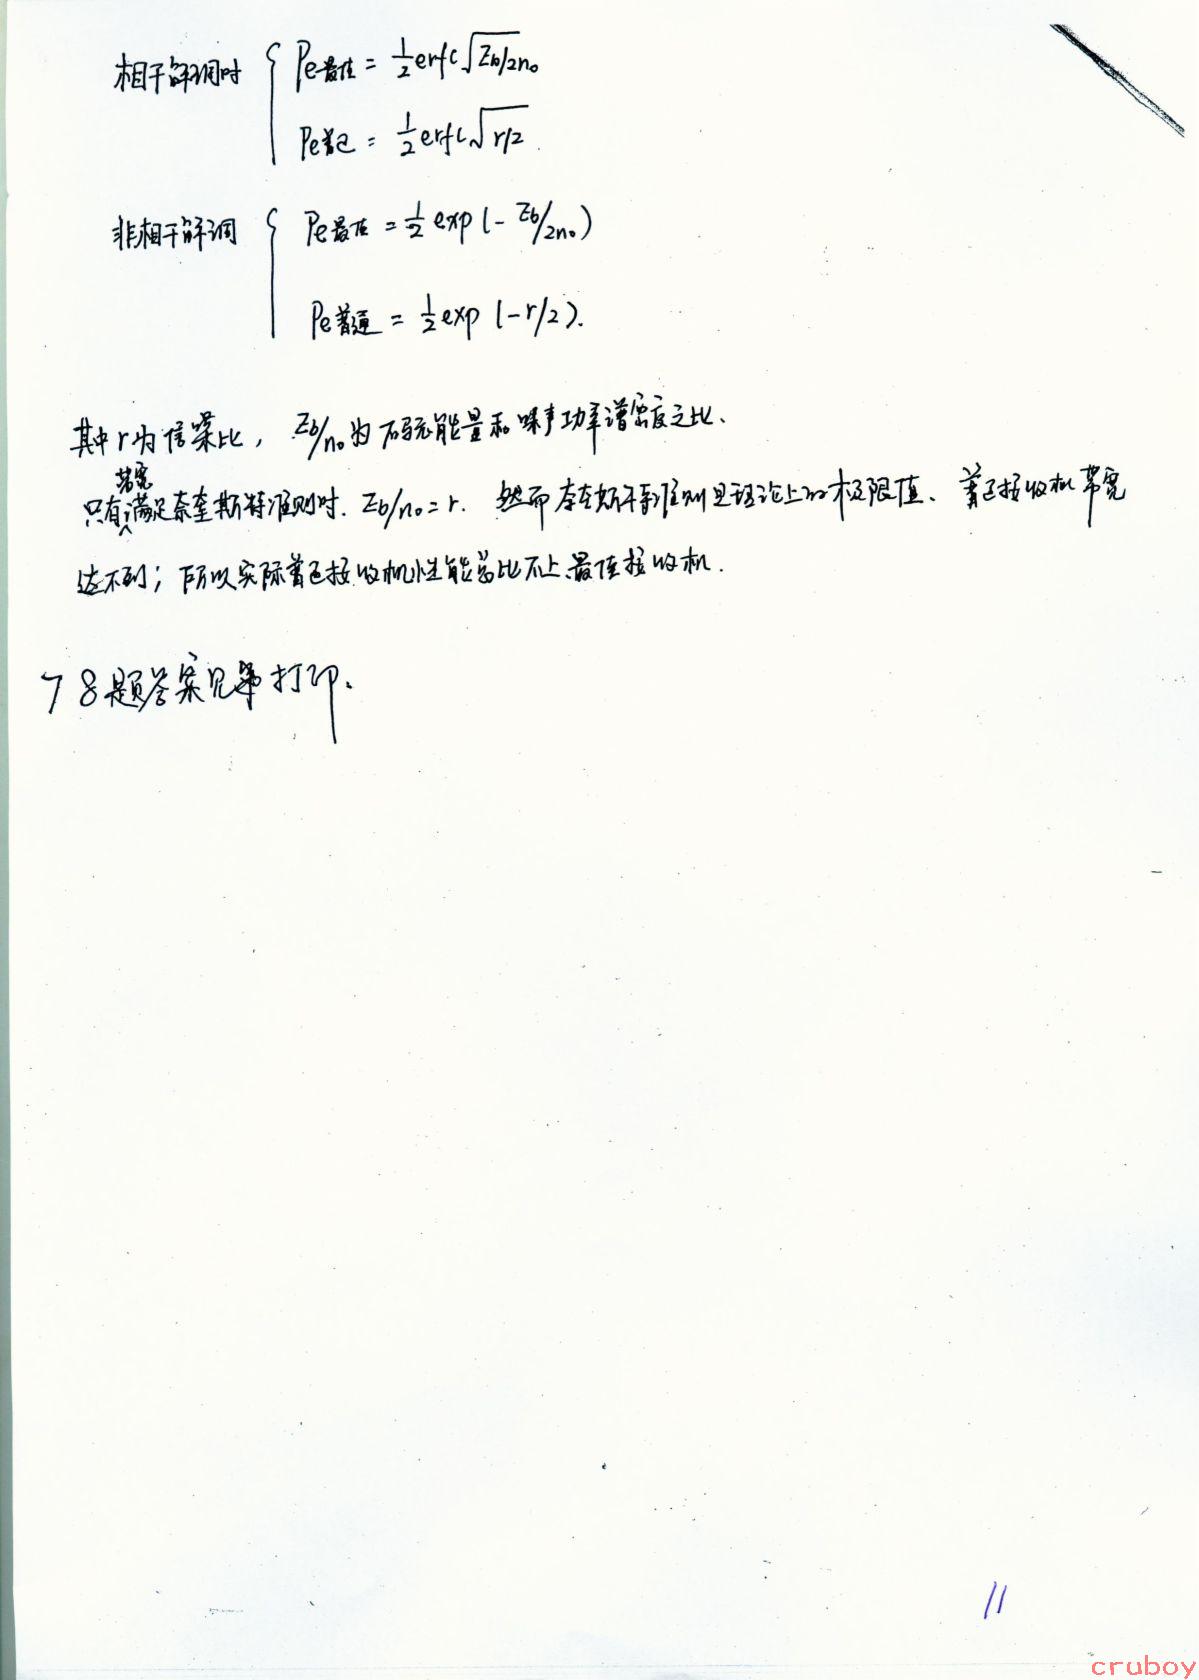 相干解调时 { Pe最佳 = 1/2 erfc √(Eb/2n₀)
Pe普通 = 1/2 erfc √(r/2)
非相干解调 { Pe最佳 = 1/2 exp (-Eb/2n₀)
Pe普通 = 1/2 exp (-r/2).
其中r为信噪比, Eb/n₀为码元能量和噪声功率谱密度之比.
带宽
只有满足奈奎斯特准则时. Eb/n₀=r. 然而奈奎斯特准则是理论上的极限值、普通接收机带宽
达不到; 所以实际普通接收机性能总比不上最佳接收机.
7 8题答案见 打印.
11
cruboy